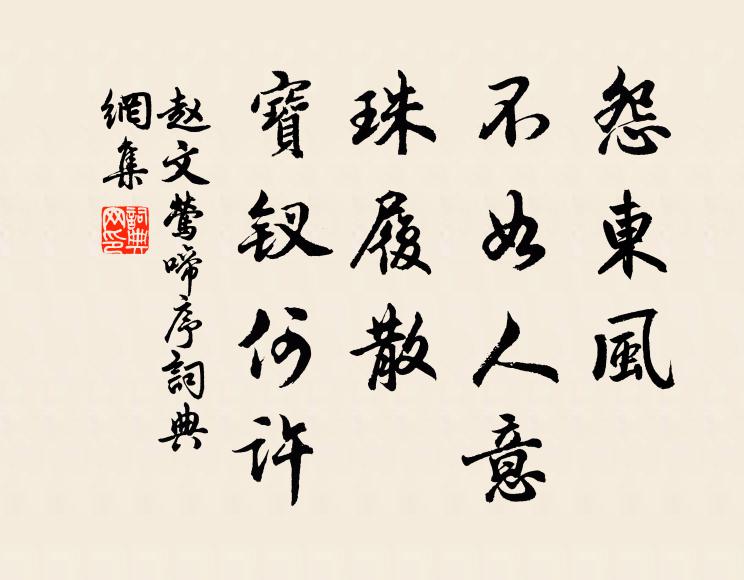 怨東風
不如人意
珠履散
寶钗何許
赵文鶯啼序詞典
網集
詞典網印